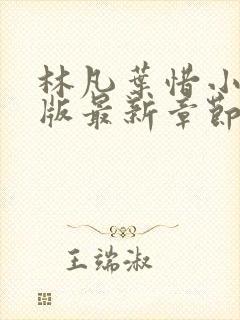 林凡葉惜小
版最新章節
王端淑